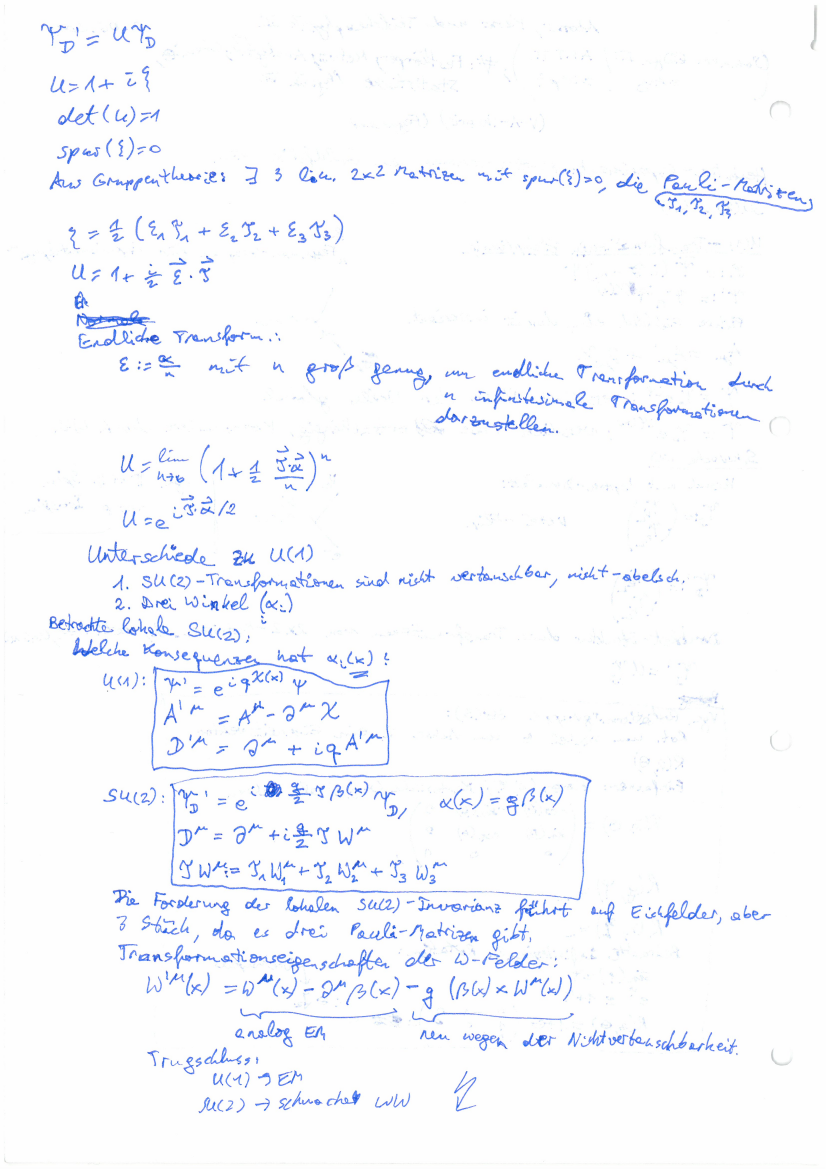 Ψ_D' = U Ψ_D
U = 1 + i ξ
det(U) = 1
spur(ξ) = 0
Aus Gruppentheorie: ∃ 3 lin. 2x2 Matrizen mit spur(ξ)=0, die Pauli-Matrizen,
τ₁, τ₂, τ₃
ξ = 1/2 (ε₁τ₁ + ε₂τ₂ + ε₃τ₃)
U = 1 + i/2 ε⃗ · τ⃗
Endliche Transform.:
ε := α/n mit n groß genug, um endliche Transformation durch
n infinitesimale Transformationen
darzustellen.
U = lim n→∞ (1 + 1/2 τ⃗·α⃗/n)^n
U = e^{i τ⃗·α⃗/2}
Unterschiede zu U(1)
1. SU(2)-Transformationen sind nicht vertauschbar, nicht-abelsch.
2. Drei Winkel (α_i)
Betrachte lokale SU(2);
Welche Konsequenzen hat α_i(x) :
U(1): Ψ' = e^{i q χ(x)} Ψ
A'^μ = A^μ - ∂^μ χ
D'^μ = ∂^μ + i q A'^μ
SU(2): Ψ_D' = e^{i g/2 τ β(x)} Ψ_D, α(x) = g β(x)
D^μ = ∂^μ + i g/2 τ W^μ
τ W^μ := τ₁ W₁^μ + τ₂ W₂^μ + τ₃ W₃^μ
Die Forderung der lokalen SU(2)-Invarianz führt auf Eichfelder, aber
3 Stück, da es drei Pauli-Matrizen gibt.
Transformationseigenschaften der W-Felder:
W'^μ(x) = W^μ(x) - ∂^μ β(x) - g (β(x) × W^μ(x))
analog EM neu wegen der Nichtvertauschbarkeit.
Trugschluss:
U(1) → EM
SU(2) → schwache WW ↯